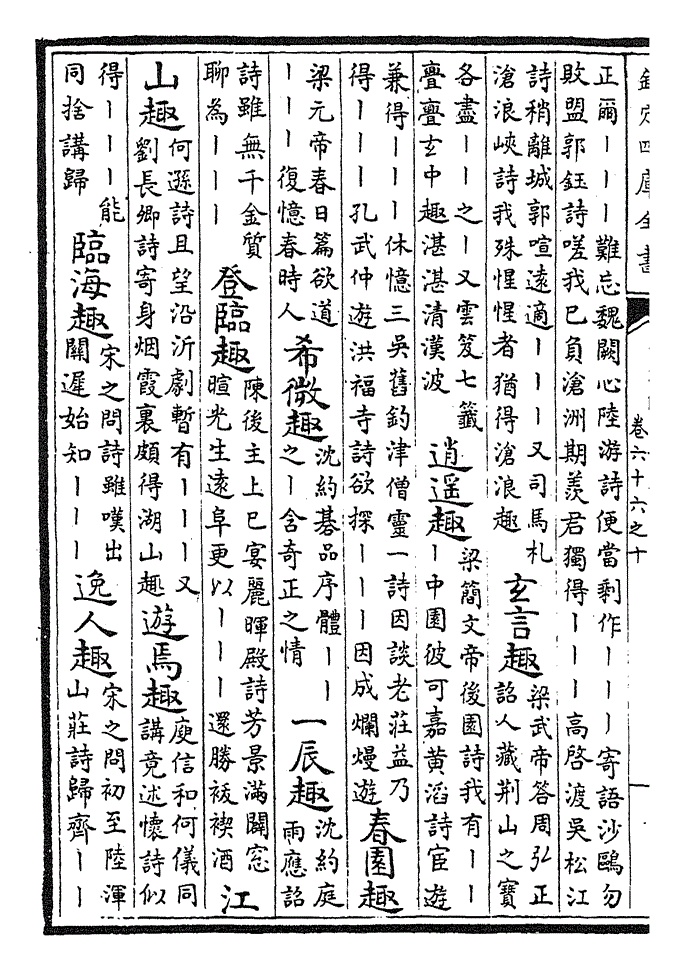 欽定四庫全書
卷六十六之十
正爾丨丨丨難忘魏闕心陸游詩便當剩作丨丨丨寄語沙鷗勿
敗盟郭鈺詩嗟我已負滄洲期羨君獨得丨丨丨高啓渡吳松江
詩稍離城郭喧遠適丨丨丨又司馬札
滄浪峽詩我殊惺惺者猶得滄浪趣
玄言趣
梁武帝答周弘正
詔人藏荆山之寶
各盡丨丨之丨又雲笈七籤
亹亹玄中趣湛湛清漢波
逍遥趣
梁簡文帝後園詩我有丨丨
丨中園彼可嘉黄滔詩宦遊
兼得丨丨丨休憶三吳舊釣津僧靈一詩因談老莊益乃
得丨丨丨孔武仲遊洪福寺詩欲探丨丨丨因成爛熳遊
春園趣
梁元帝春日篇欲道
丨丨丨復憶春時人
希微趣
沈約碁品序體丨丨
之丨含奇正之情
一辰趣
沈約庭
雨應詔
詩雖無千金質
聊為丨丨丨
登臨趣
陳後主上巳宴麗暉殿詩芳景滿闢窓
暄光生遠阜更以丨丨丨還勝祓禊酒
江
山趣
何遜詩且望沿沂劇暫有丨丨丨又
劉長卿詩寄身烟霞裏頗得湖山趣
遊焉趣
庾信和何儀同
講竟述懷詩似
得丨丨丨能
同捨講歸
臨海趣
宋之問詩雖嘆出
關遲始知丨丨丨
逸人趣
宋之問初至陸渾
山莊詩歸齊丨丨